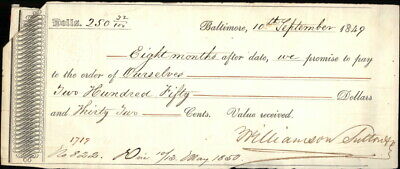 Dolls. 250 32/100 Baltimore, 10th September 1849
Eight months after date, we promise to pay
to the order of Ourselves
Two Hundred Fifty Dollars
and Thirty Two Cents. Value received.
Williamson
1719
No 822. Due 10/13 May 1850